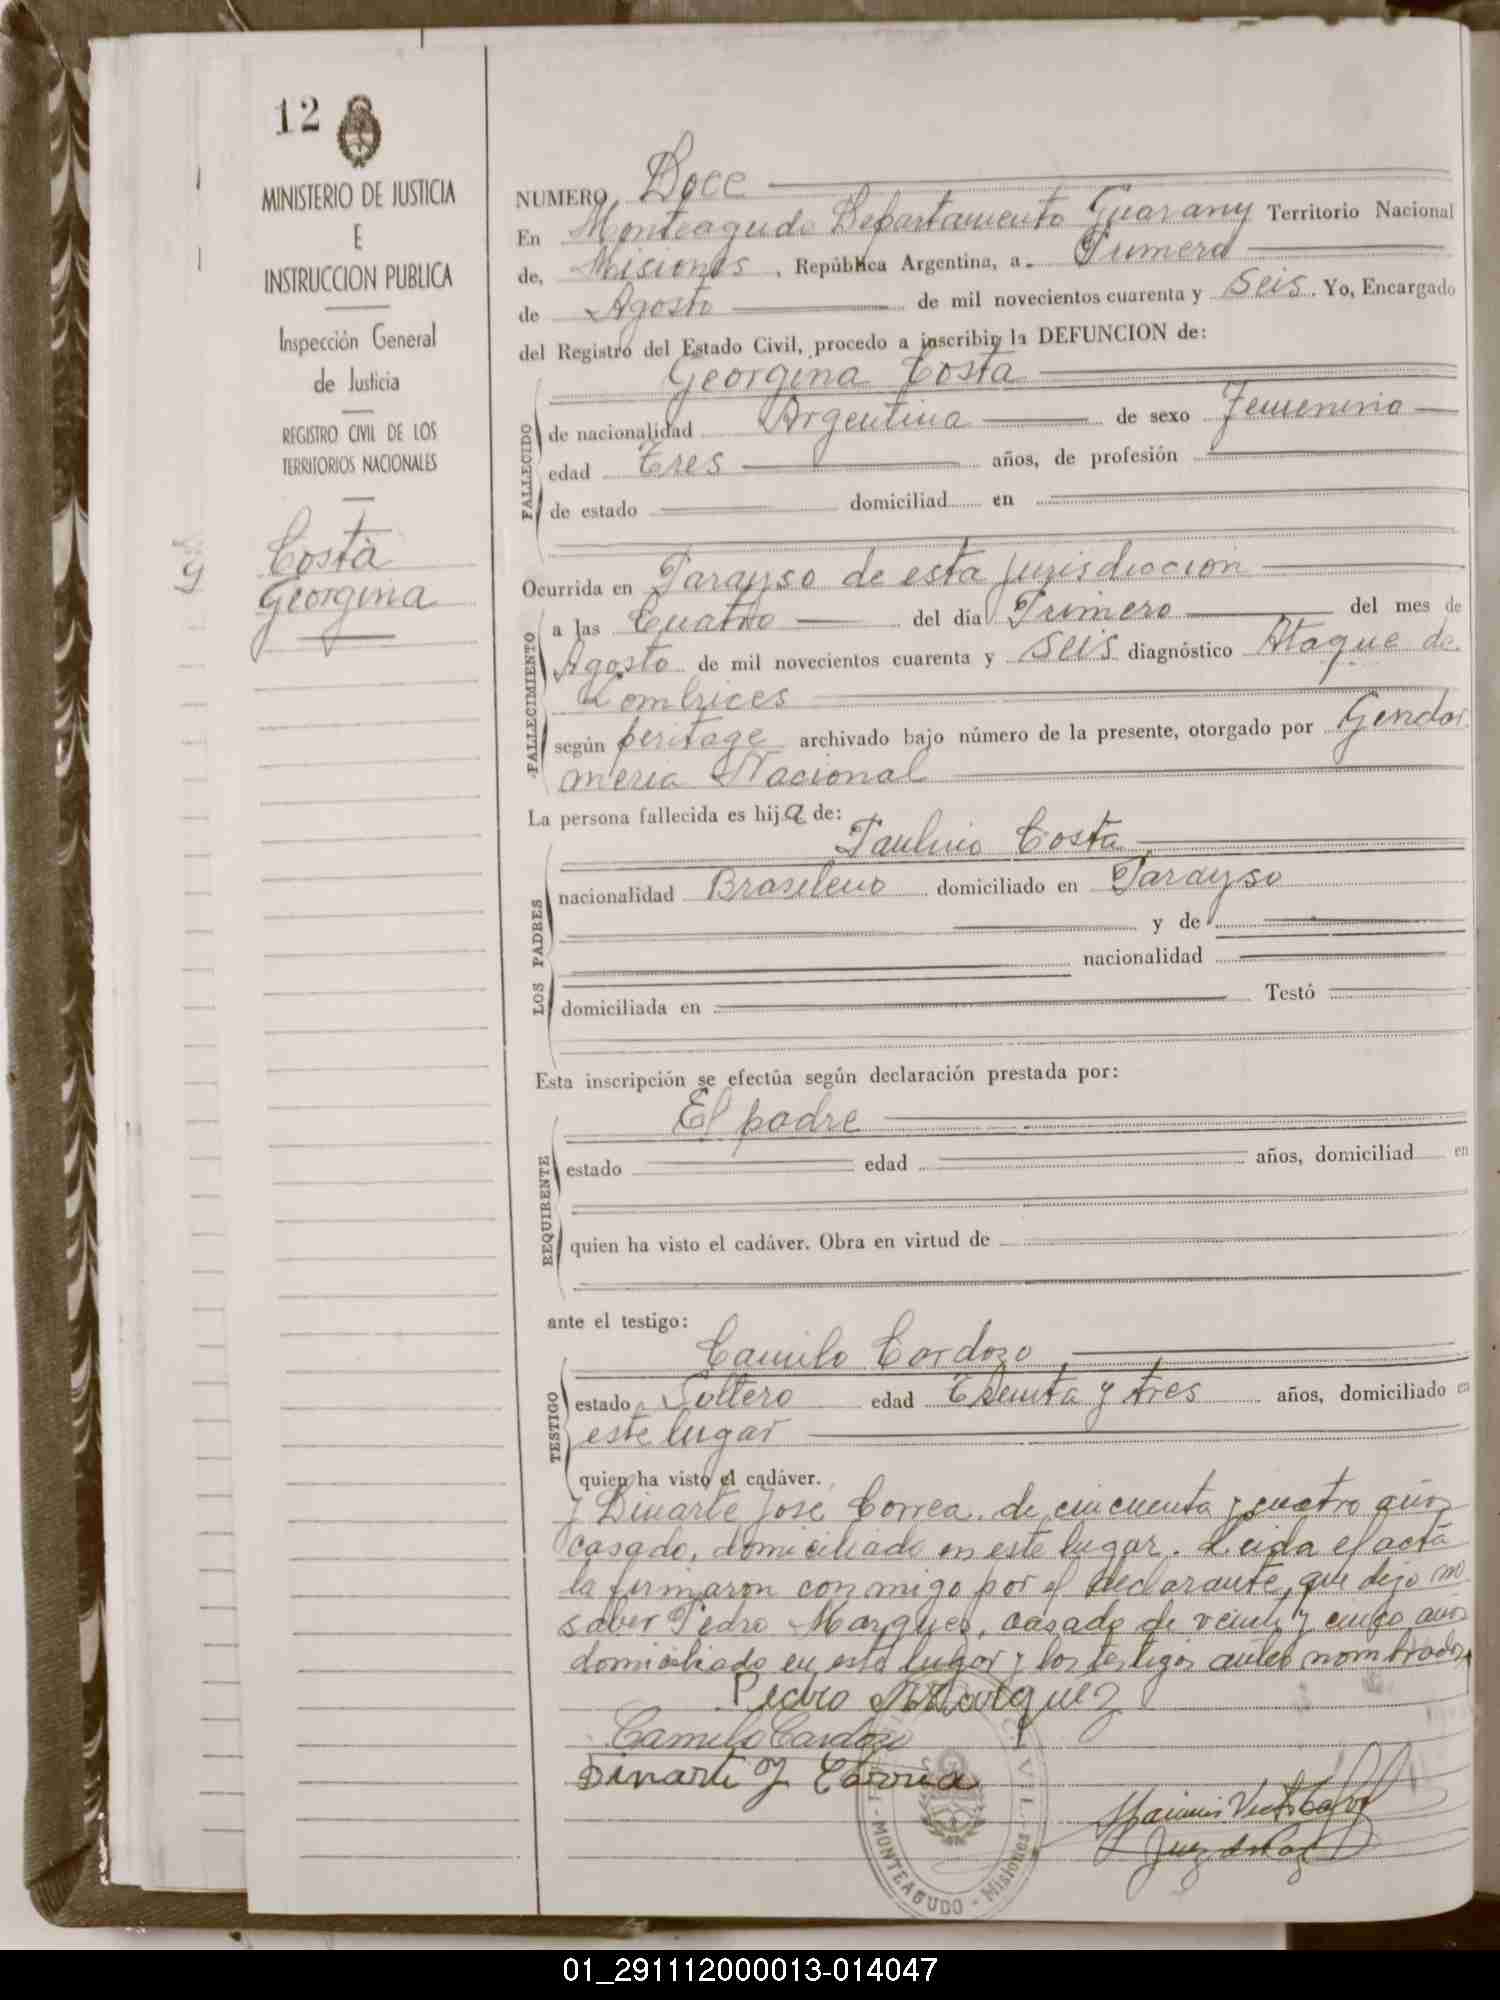 12
MINISTERIO DE JUSTICIA
E
INSTRUCCION PUBLICA
Inspección General
de Justicia
REGISTRO CIVIL DE LOS
TERRITORIOS NACIONALES
Costa
Georgina
NUMERO Doce
En Monteagudo Departamento Guarany Territorio Nacional
de, Misiones, República Argentina, a Primero
de Agosto de mil novecientos cuarenta y seis. Yo, Encargado
del Registro del Estado Civil, procedo a inscribir la DEFUNCION de:
Georgina Costa
FALLECIDO
de nacionalidad Argentina de sexo Femenino
edad Tres años, de profesión
de estado domiciliad en
Ocurrida en Parayso de esta jurisdiccion
FALLECIMIENTO
a las Cuatro del día Primero del mes de
Agosto de mil novecientos cuarenta y seis diagnóstico Ataque de
Lombrices
según peritage archivado bajo número de la presente, otorgado por Gendar
meria Nacional
La persona fallecida es hija de:
Paulino Costa
LOS PADRES
nacionalidad Brasileno domiciliado en Parayso
y de
nacionalidad
domiciliada en Testó
Esta inscripción se efectúa según declaración prestada por:
El padre
REQUIRENTE
estado edad años, domiciliad en
quien ha visto el cadáver. Obra en virtud de
ante el testigo:
Camilo Cardozo
TESTIGO
estado Soltero edad Treinta y tres años, domiciliado en
este lugar
quien ha visto el cadáver.
y Dinarte Jose Correa, de cincuenta y cuatro años
casado, domiciliado en este lugar. Leida el acta
la firmaron conmigo por el declarante, que dijo no
saber Pedro Marques, casado de veinte y cinco años
domiciliado en este lugar y los testigos antes nombrados
Pedro Marquez
Camilo Cardozo
Dinarte J Correa
Juez de Paz
CIVIL - MONTEAGUDO - Misiones
01_291112000013-014047